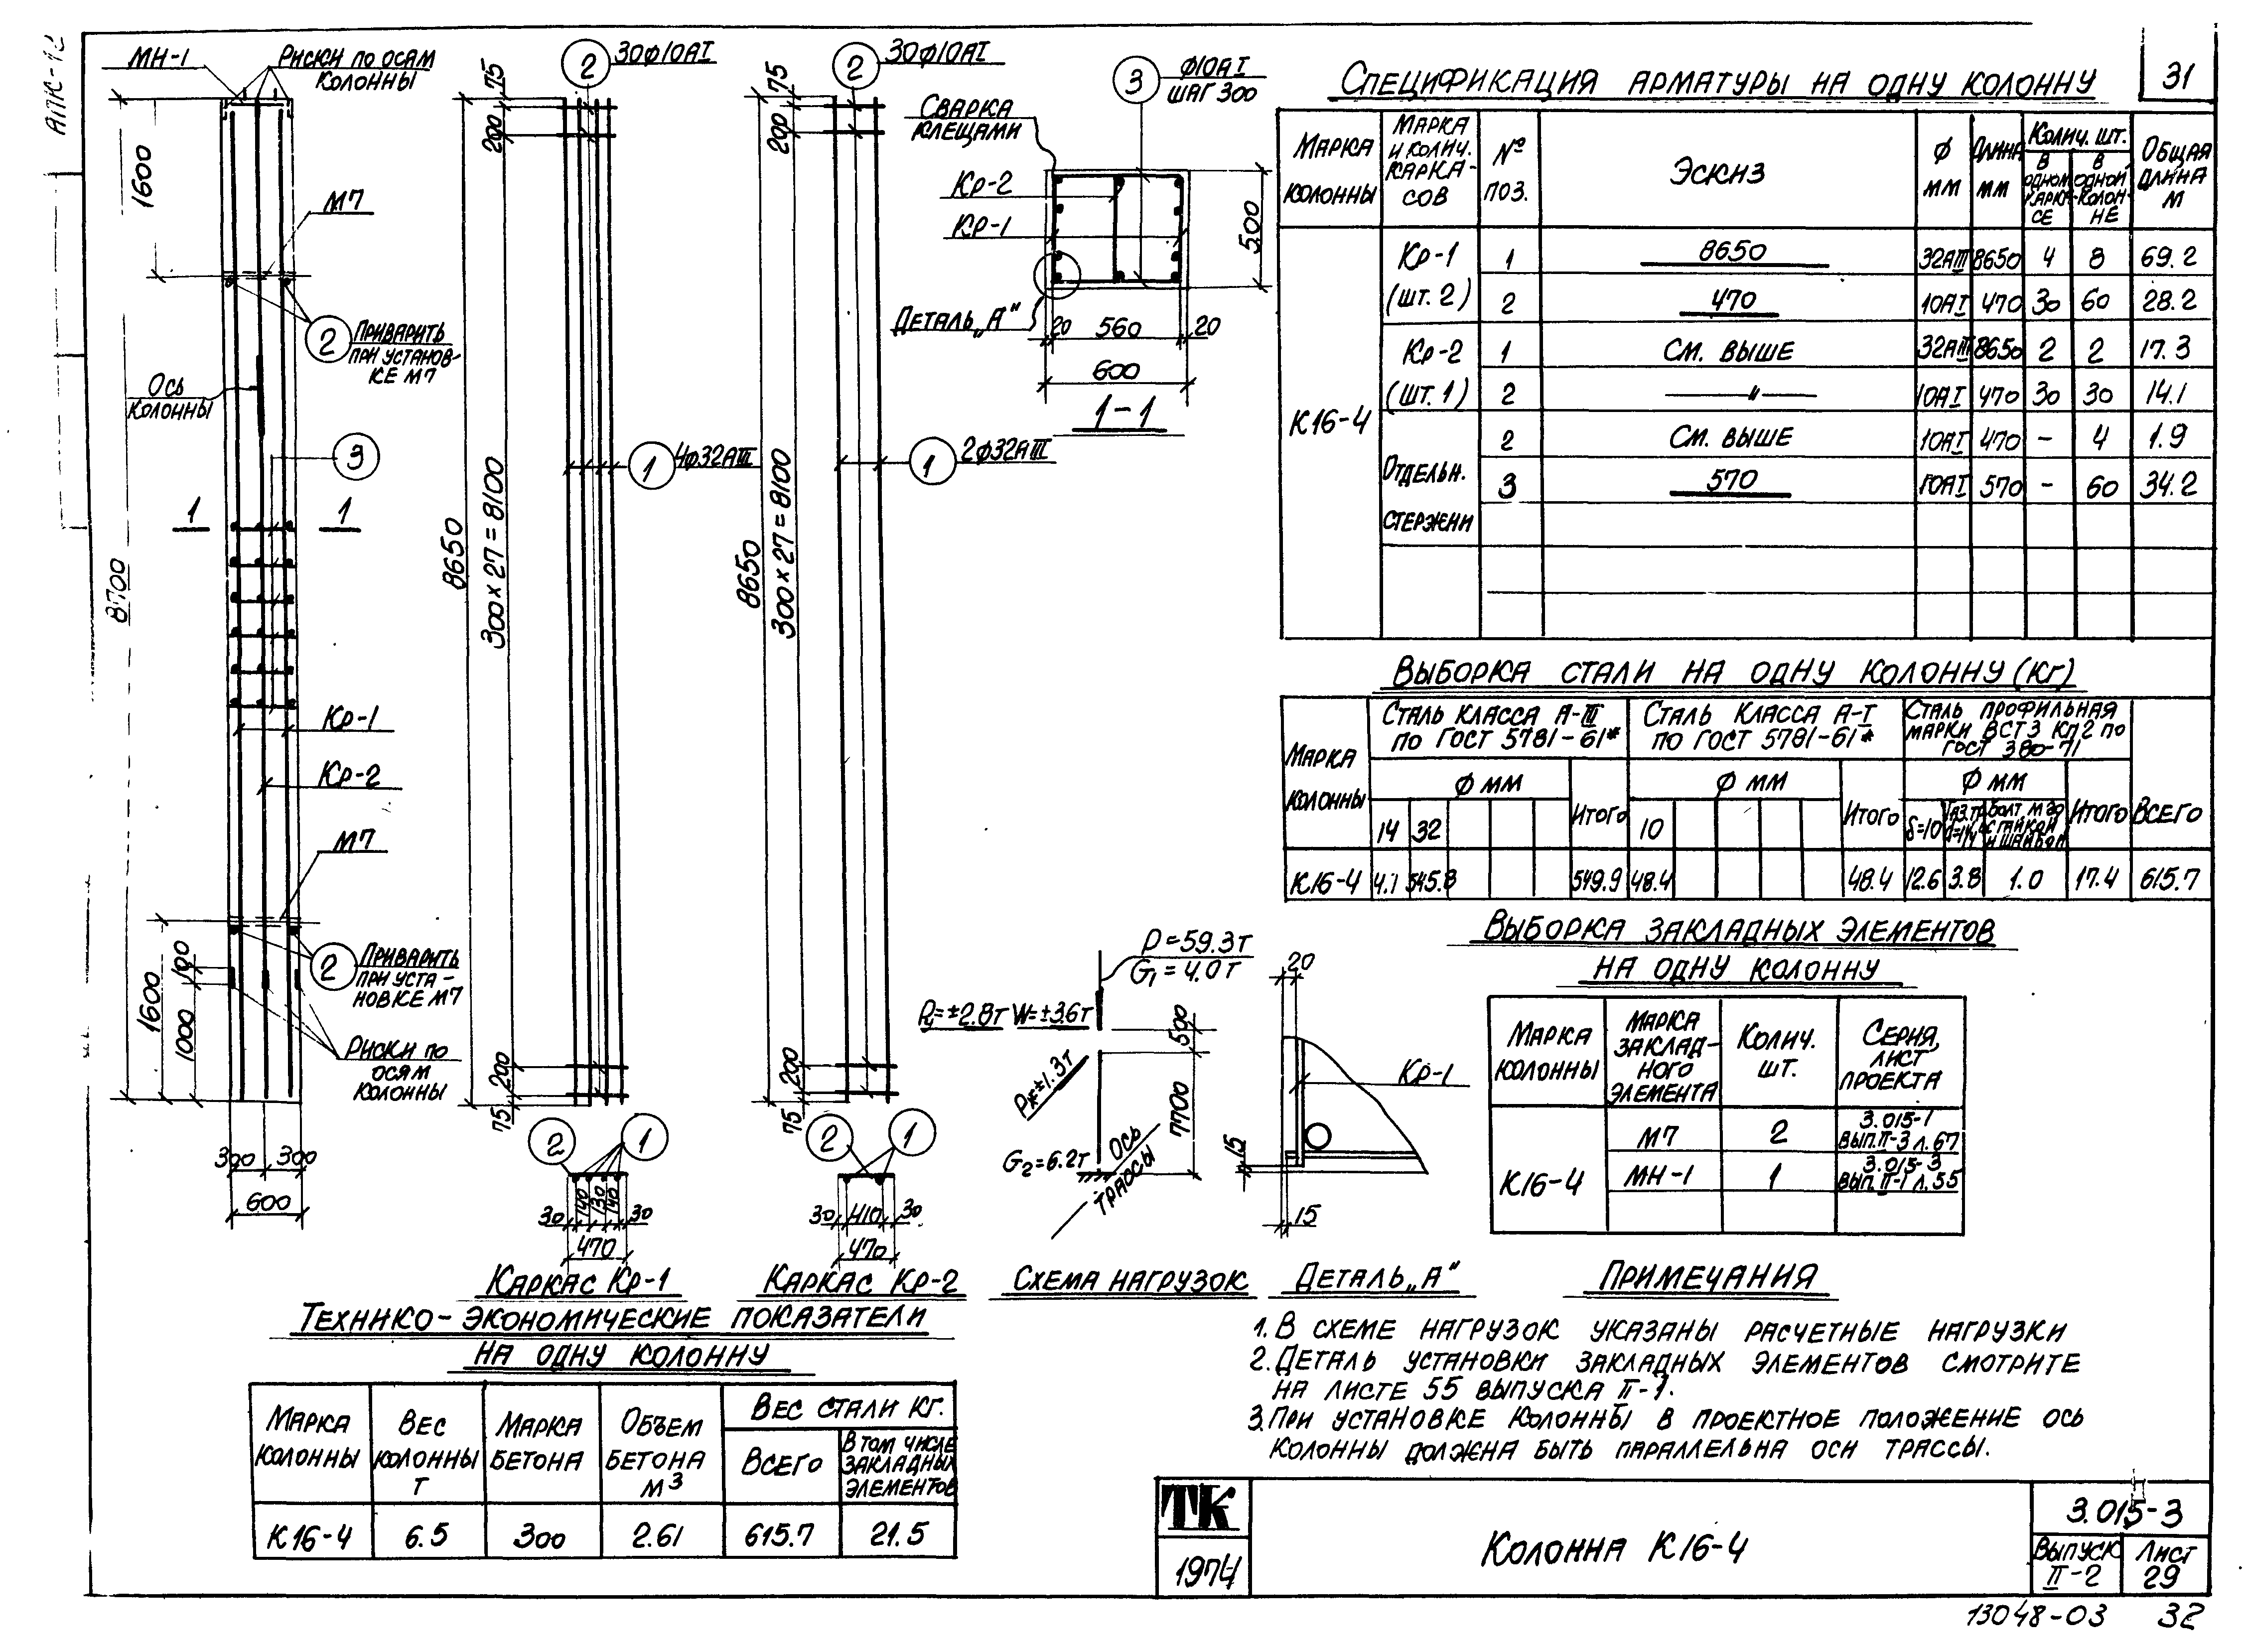 АПК-12
31
МН-1
Риски по осям
колонны
1600
М7
2
Приварить
при установ-
ке М7
Ось
колонны
3
1 1
8700
Кр-1
Кр-2
М7
2
Приварить
при уста-
новке М7
100
1600
1000
Риски по
осям
колонны
300 300
600
2 30ф10АI
75
200
8650
300×27=8100
1 4ф32АIII
200
75
2 1
30 140 130 140 30
470
Каркас Кр-1
2 30ф10АI
75
200
8650
300×27=8100
1 2ф32АIII
200
75
2 1
30 410 30
470
Каркас Кр-2
3 ф10АI
шаг 300
Сварка
клещами
Кр-2
Кр-1
500
Деталь „А"
20 560 20
600
1-1
P=59.3т
G1=4.0т
W=±3.6т
500
7700
G2=6.2т
Ось
трассы
Схема нагрузок
20
Кр-1
15
15
Деталь „А"
Спецификация арматуры на одну колонну
Марка колонны Марка и колич. каркасов № поз. Эскиз ф мм Длина мм Колич. шт. Общая длина м
в одном каркасе в одной колонне
К16-4
Кр-1 1 8650 32АIII 8650 4 8 69.2
(шт. 2) 2 470 10АI 470 30 60 28.2
Кр-2 1 См. выше 32АIII 8650 2 2 17.3
(шт. 1) 2 —"— 10АI 470 30 30 14.1
2 См. выше 10АI 470 - 4 1.9
Отдельн. 3 570 10АI 570 - 60 34.2
стержни
Выборка стали на одну колонну (кг)
Марка колонны Сталь класса А-III по ГОСТ 5781-61* Сталь класса А-I по ГОСТ 5781-61* Сталь профильная марки ВСТ3 КП2 по ГОСТ 380-71 Всего
ф мм Итого ф мм Итого ф мм Итого
14 32 10 δ=10 болт М20 с гайкой и шайбой
К16-4 4.1 545.8 549.9 48.4 48.4 12.6 3.8 1.0 17.4 615.7
Выборка закладных элементов
на одну колонну
Марка колонны Марка закладного элемента Колич. шт. Серия, лист проекта
К16-4 М7 2 3.015-1 вып.II-3 л.67
МН-1 1 3.015-3 вып.II-1 л.55
Примечания
1. В схеме нагрузок указаны расчетные нагрузки
2. Деталь установки закладных элементов смотрите
на листе 55 выпуска II-1.
3. При установке колонны в проектное положение ось
колонны должна быть параллельна оси трассы.
Технико-экономические показатели
на одну колонну
Марка колонны Вес колонны т Марка бетона Объем бетона м3 Вес стали кг.
Всего В том числе закладных элементов
К16-4 6.5 300 2.61 615.7 21.5
ТК
1974
Колонна К16-4
3.015-3
Выпуск II-2
Лист 29
13048-03 32